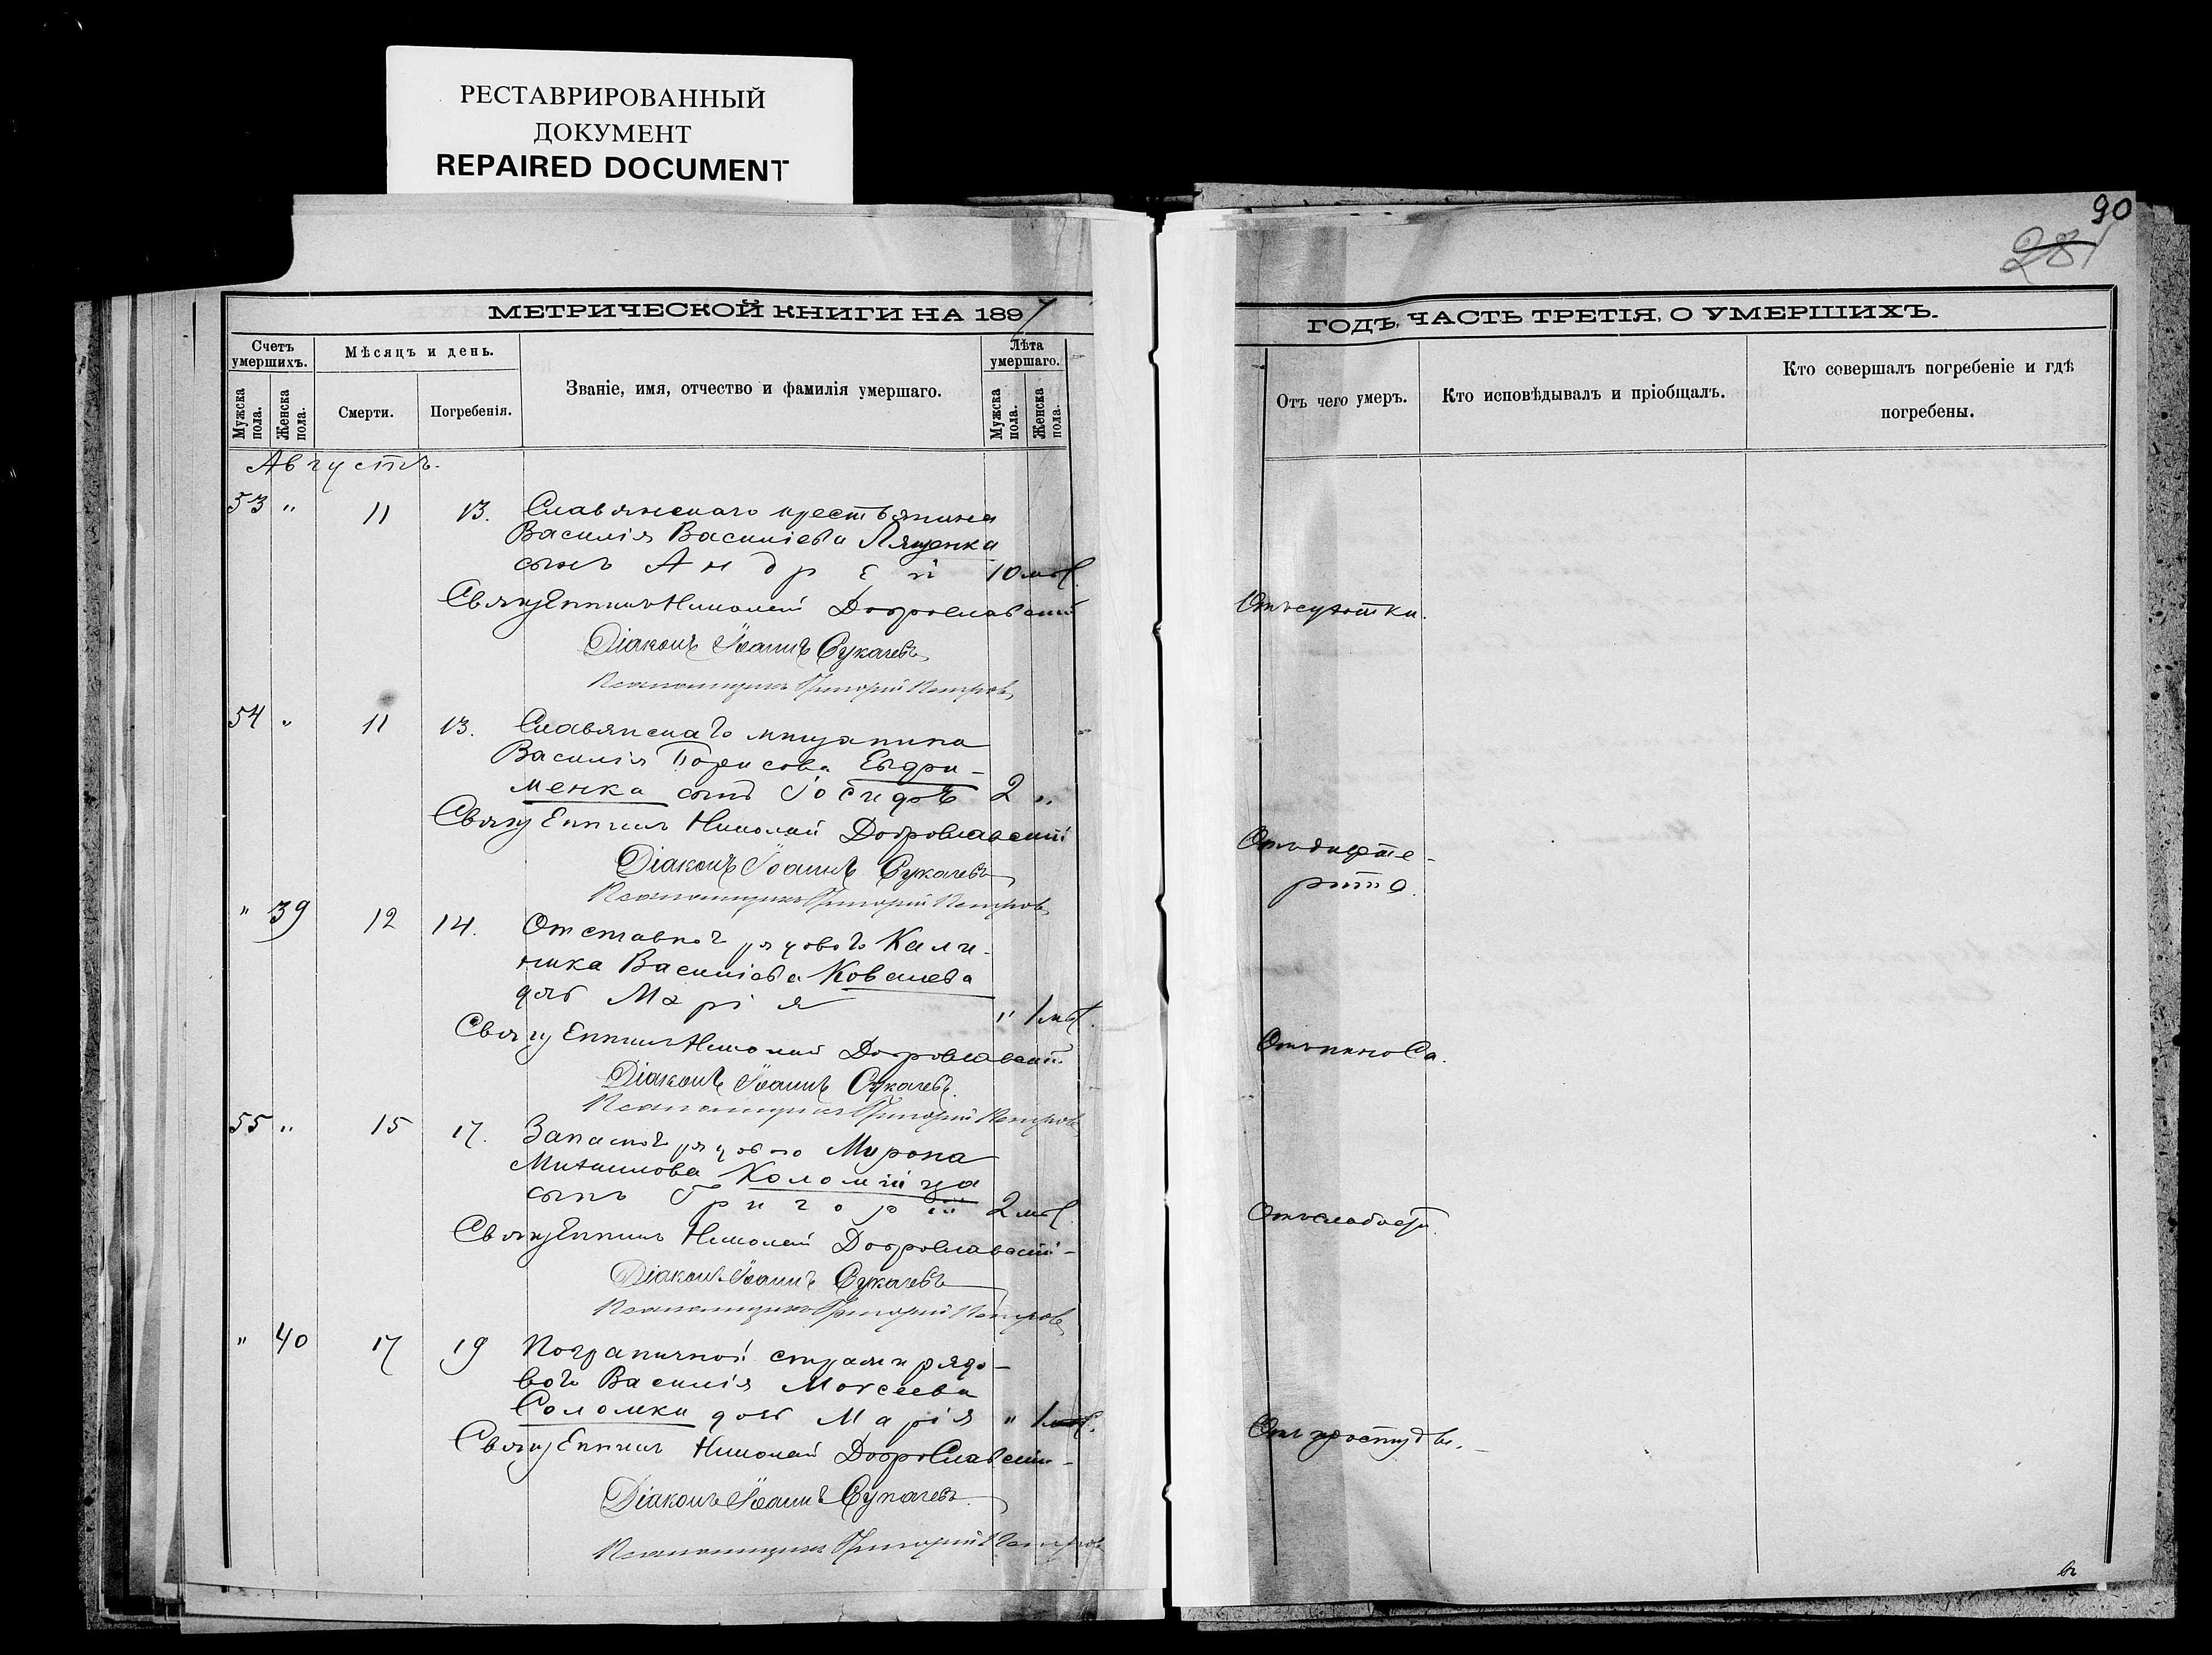 РЕСТАВРИРОВАННЫЙ
ДОКУМЕНТ
REPAIRED DOCUMENT
90
281
МЕТРИЧЕСКОЙ КНИГИ НА 1897
ГОДЪ, ЧАСТЬ ТРЕТІЯ, О УМЕРШИХЪ.
Счетъ умершихъ.
Мужска пола.
Женска пола.
Мѣсяцъ и день.
Смерти.
Погребенія.
Званіе, имя, отчество и фамилія умершаго.
Лѣта умершаго.
Мужска пола.
Женска пола.
Отъ чего умеръ.
Кто исповѣдывалъ и пріобщалъ.
Кто совершалъ погребеніе и гдѣ
погребены.
Августъ.
53 " 11 13. Славянскаго крестьянина
Василія Василіева Лященка
сынъ Андрей 10 мѣс.
Священникъ Николай Доброславскій
Отъ сухотки.
Діаконъ Іоаннъ Сукачевъ
Псаломщикъ Григорій Петровъ
54 " 11 13. Славянскаго мѣщанина
Василія Борисова Ефри-
менка сынъ Іосифъ 2 "
Священникъ Николай Доброславскій
Отъ дифте-
рита.
Діаконъ Іоаннъ Сукачевъ
Псаломщикъ Григорій Петровъ
" 39 12 14. Отставного рядового Кали-
ника Василіева Ковалева
дочь Марія " 1 мѣс.
Священникъ Николай Доброславскій
Отъ поноса.
Діаконъ Іоаннъ Сукачевъ.
Псаломщикъ Григорій Петровъ
55 " 15 17. Запасного рядового Мирона
Михаилова Коломійца
сынъ Григорій 2 мѣс.
Священникъ Николай Доброславскій
Отъ слабост.
Діаконъ Іоаннъ Сукачевъ
Псаломщикъ Григорій Петровъ
" 40 17 19 Пограничной стражи рядо-
вого Василія Моисеева
Соломки дочь Марія " 1 мѣс.
Священникъ Николай Доброславскій
Отъ простуды.
Діаконъ Іоаннъ Сукачевъ.
Псаломщикъ Григорій Петровъ